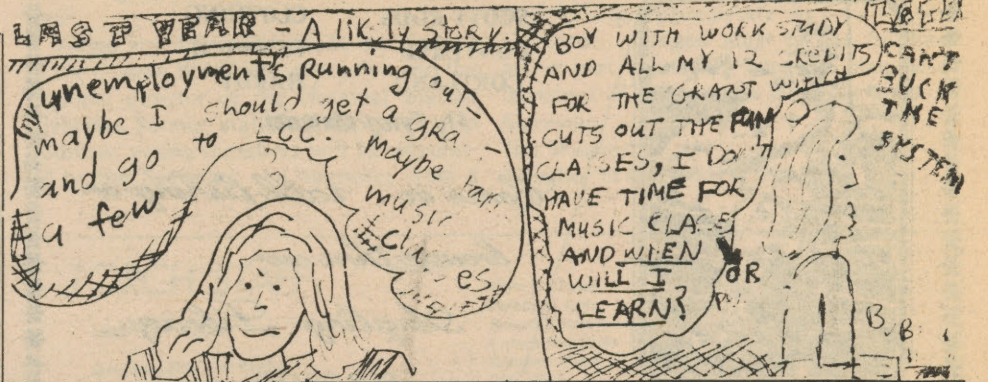 LAST YEAR - A likely story.
my unemployment's running out -
maybe I should get a gra
and go to LCC. maybe
a few music
classes
LATER
BOY WITH WORK STUDY
AND ALL MY 12 CREDITS
FOR THE GRANT WHICH
CUTS OUT THE FUN
CLASSES, I DON'T
HAVE TIME FOR
MUSIC CLASS
AND WHEN
OR
WILL I
LEARN?
CAN'T
BUCK
THE
SYSTEM